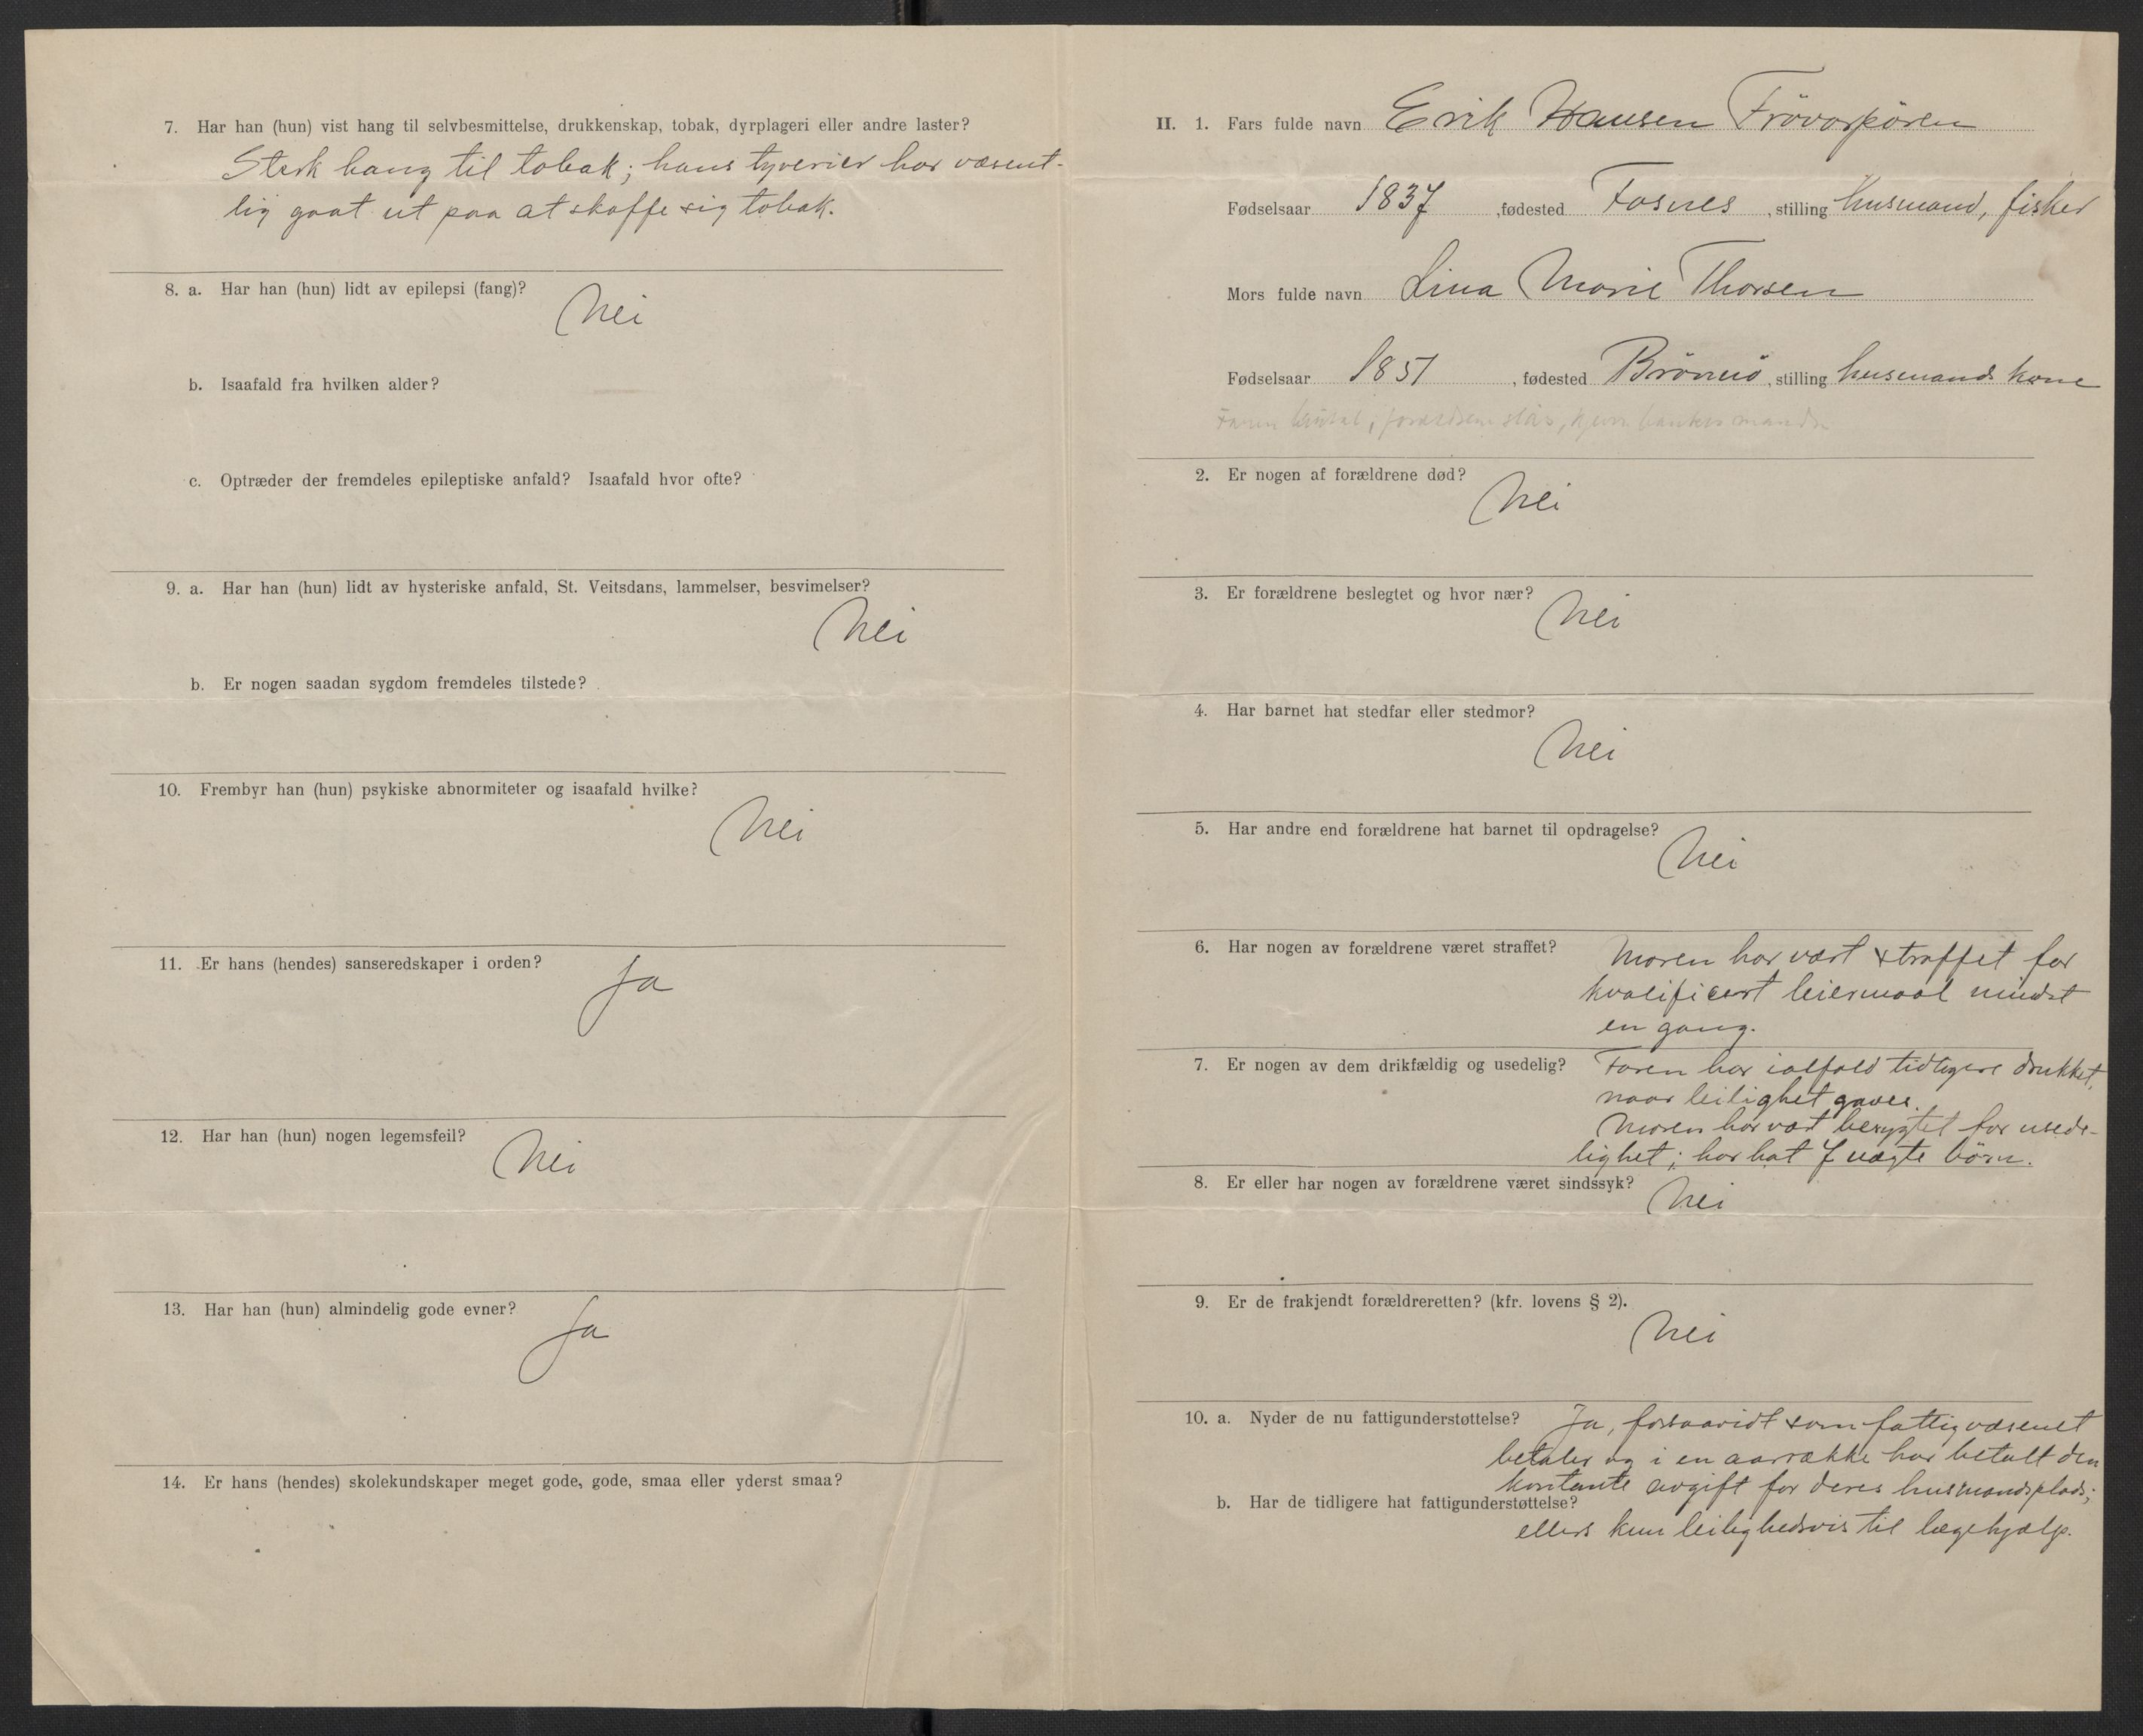 7. Har han (hun) vist hang til selvbesmittelse, drukkenskap, tobak, dyrplageri eller andre laster?
Sterk hang til tobak; hans tyverier har væsent-
lig gaat ut paa at skaffe sig tobak.
8. a. Har han (hun) lidt av epilepsi (fang)?
Nei
b. Isaafald fra hvilken alder?
c. Optræder der fremdeles epileptiske anfald? Isaafald hvor ofte?
9. a. Har han (hun) lidt av hysteriske anfald, St. Veitsdans, lammelser, besvimelser?
Nei
b. Er nogen saadan sygdom fremdeles tilstede?
10. Frembyr han (hun) psykiske abnormiteter og isaafald hvilke?
Nei
11. Er hans (hendes) sanseredskaper i orden?
Ja
12. Har han (hun) nogen legemsfeil?
Nei
13. Har han (hun) almindelig gode evner?
Ja
14. Er hans (hendes) skolekundskaper meget gode, gode, smaa eller yderst smaa?
II. 1. Fars fulde navn Erik Hansen
Fødselsaar 1837, fødested Fosnes, stilling husmand, fisker
Mors fulde navn Lina Marie Thorsen
Fødselsaar 1851, fødested Brönnö, stilling husmandskone
2. Er nogen af forældrene død?
Nei
3. Er forældrene beslegtet og hvor nær?
Nei
4. Har barnet hat stedfar eller stedmor?
Nei
5. Har andre end forældrene hat barnet til opdragelse?
Nei
6. Har nogen av forældrene været straffet? Moren har vært straffet for
kvalificert leiermaal mindst
en gang.
7. Er nogen av dem drikfældig og usedelig? Faren har ialfald tidligere drukket,
naar leilighet gaves.
Moren har vært berygtet for usede-
lighet; har hat 7 uægte börn.
8. Er eller har nogen av forældrene været sindssyk?
Nei
9. Er de frakjendt forældreretten? (kfr. lovens § 2).
Nei
10. a. Nyder de nu fattigunderstøttelse? Ja, forsaavidt som fattigvæsenet
betaler og i en aarrække har betalt den
kontante avgift for deres husmandsplads;
b. Har de tidligere hat fattigunderstøttelse?
ellers kun leilighedsvis til lægehjælp.